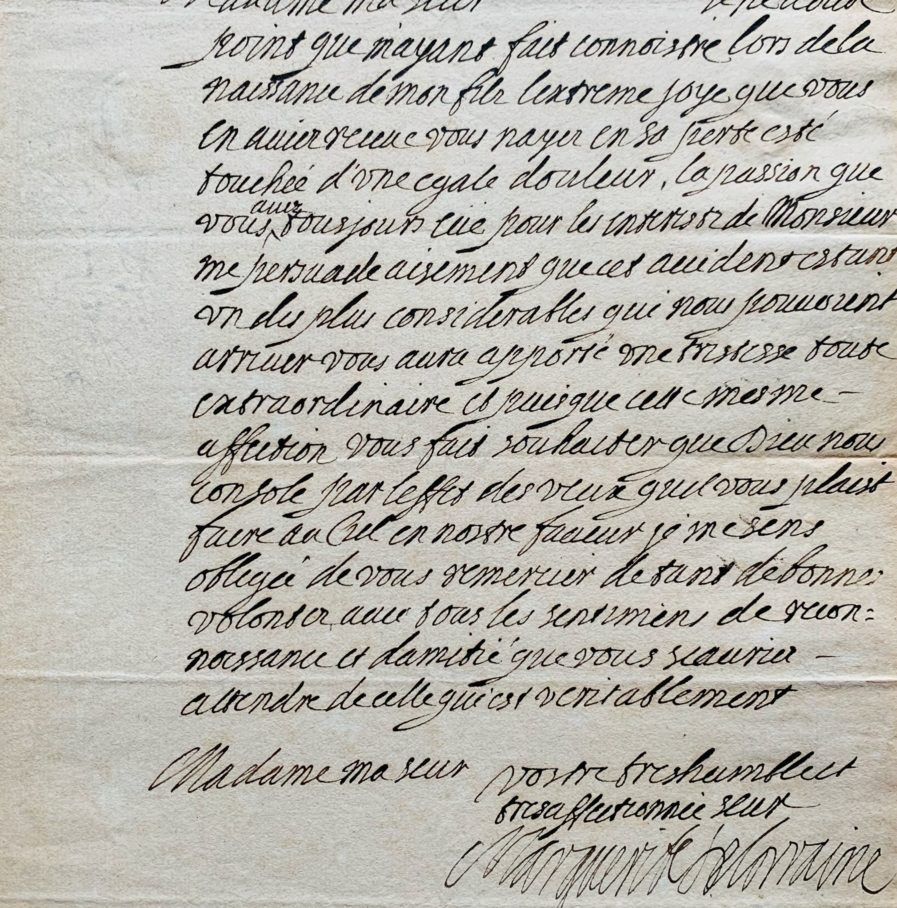 Madame ma seur
point que m'ayant fait connoistre lors de la
naissance de mon filz l'extreme joye que vous
en aviez receue vous n'ayez en sa perte esté
touchée d'une egale douleur, la passion que
vous avez tousjours eüe pour les interests de Monsieur
me persuade aisement que cet accident estant
un des plus considerables qui nous pouvoient
arriver vous aura apporté une tristesse toute
extraordinaire et puis que cette mesme
affection vous fait souhaiter que Dieu nous
console par l'effet des veux quil vous plaist
faire au Ciel en nostre faveur je me sens
obligée de vous remercier de tant de bonnes
volontez avec tous les sentimens de recon=
noissance et damitié que vous scauriez
attendre de celle qui est veritablement
Madame ma seur
vostre tres humble et
tres affectionnée seur
Marguerite de Lorraine